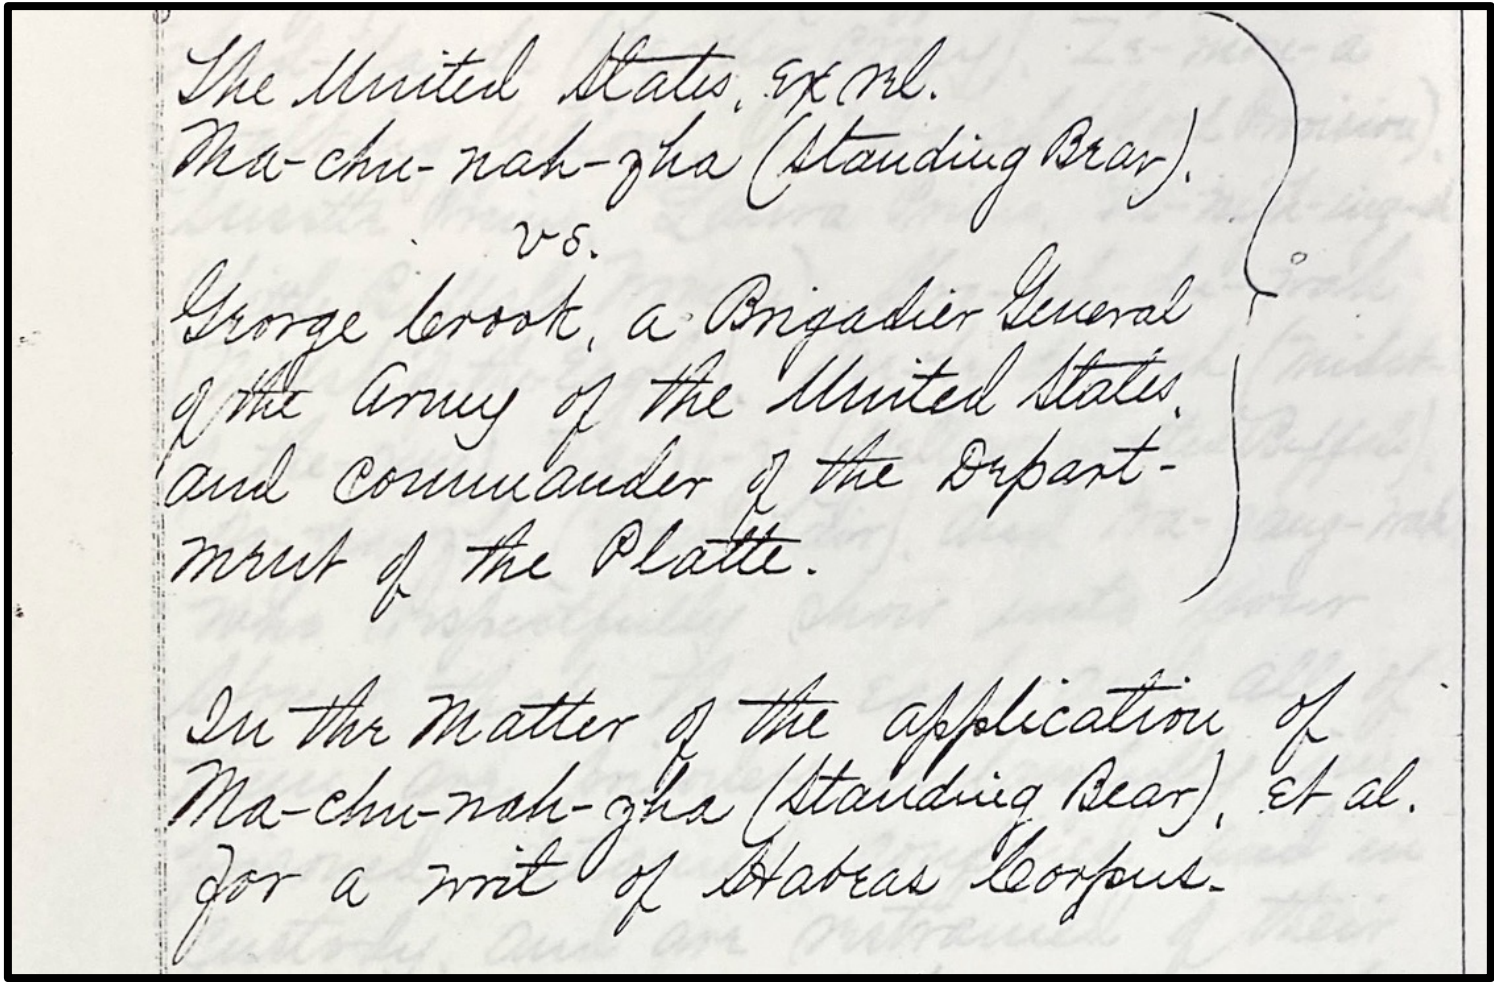 The United States, ex rel.
Ma-chu-nah-zha (Standing Bear).
vs.
George Crook, a Brigadier General
of the Army of the United States,
and commander of the Depart-
ment of the Platte.
In the Matter of the application of
Ma-chu-nah-zha (Standing Bear), et al.
for a writ of Habeas Corpus.